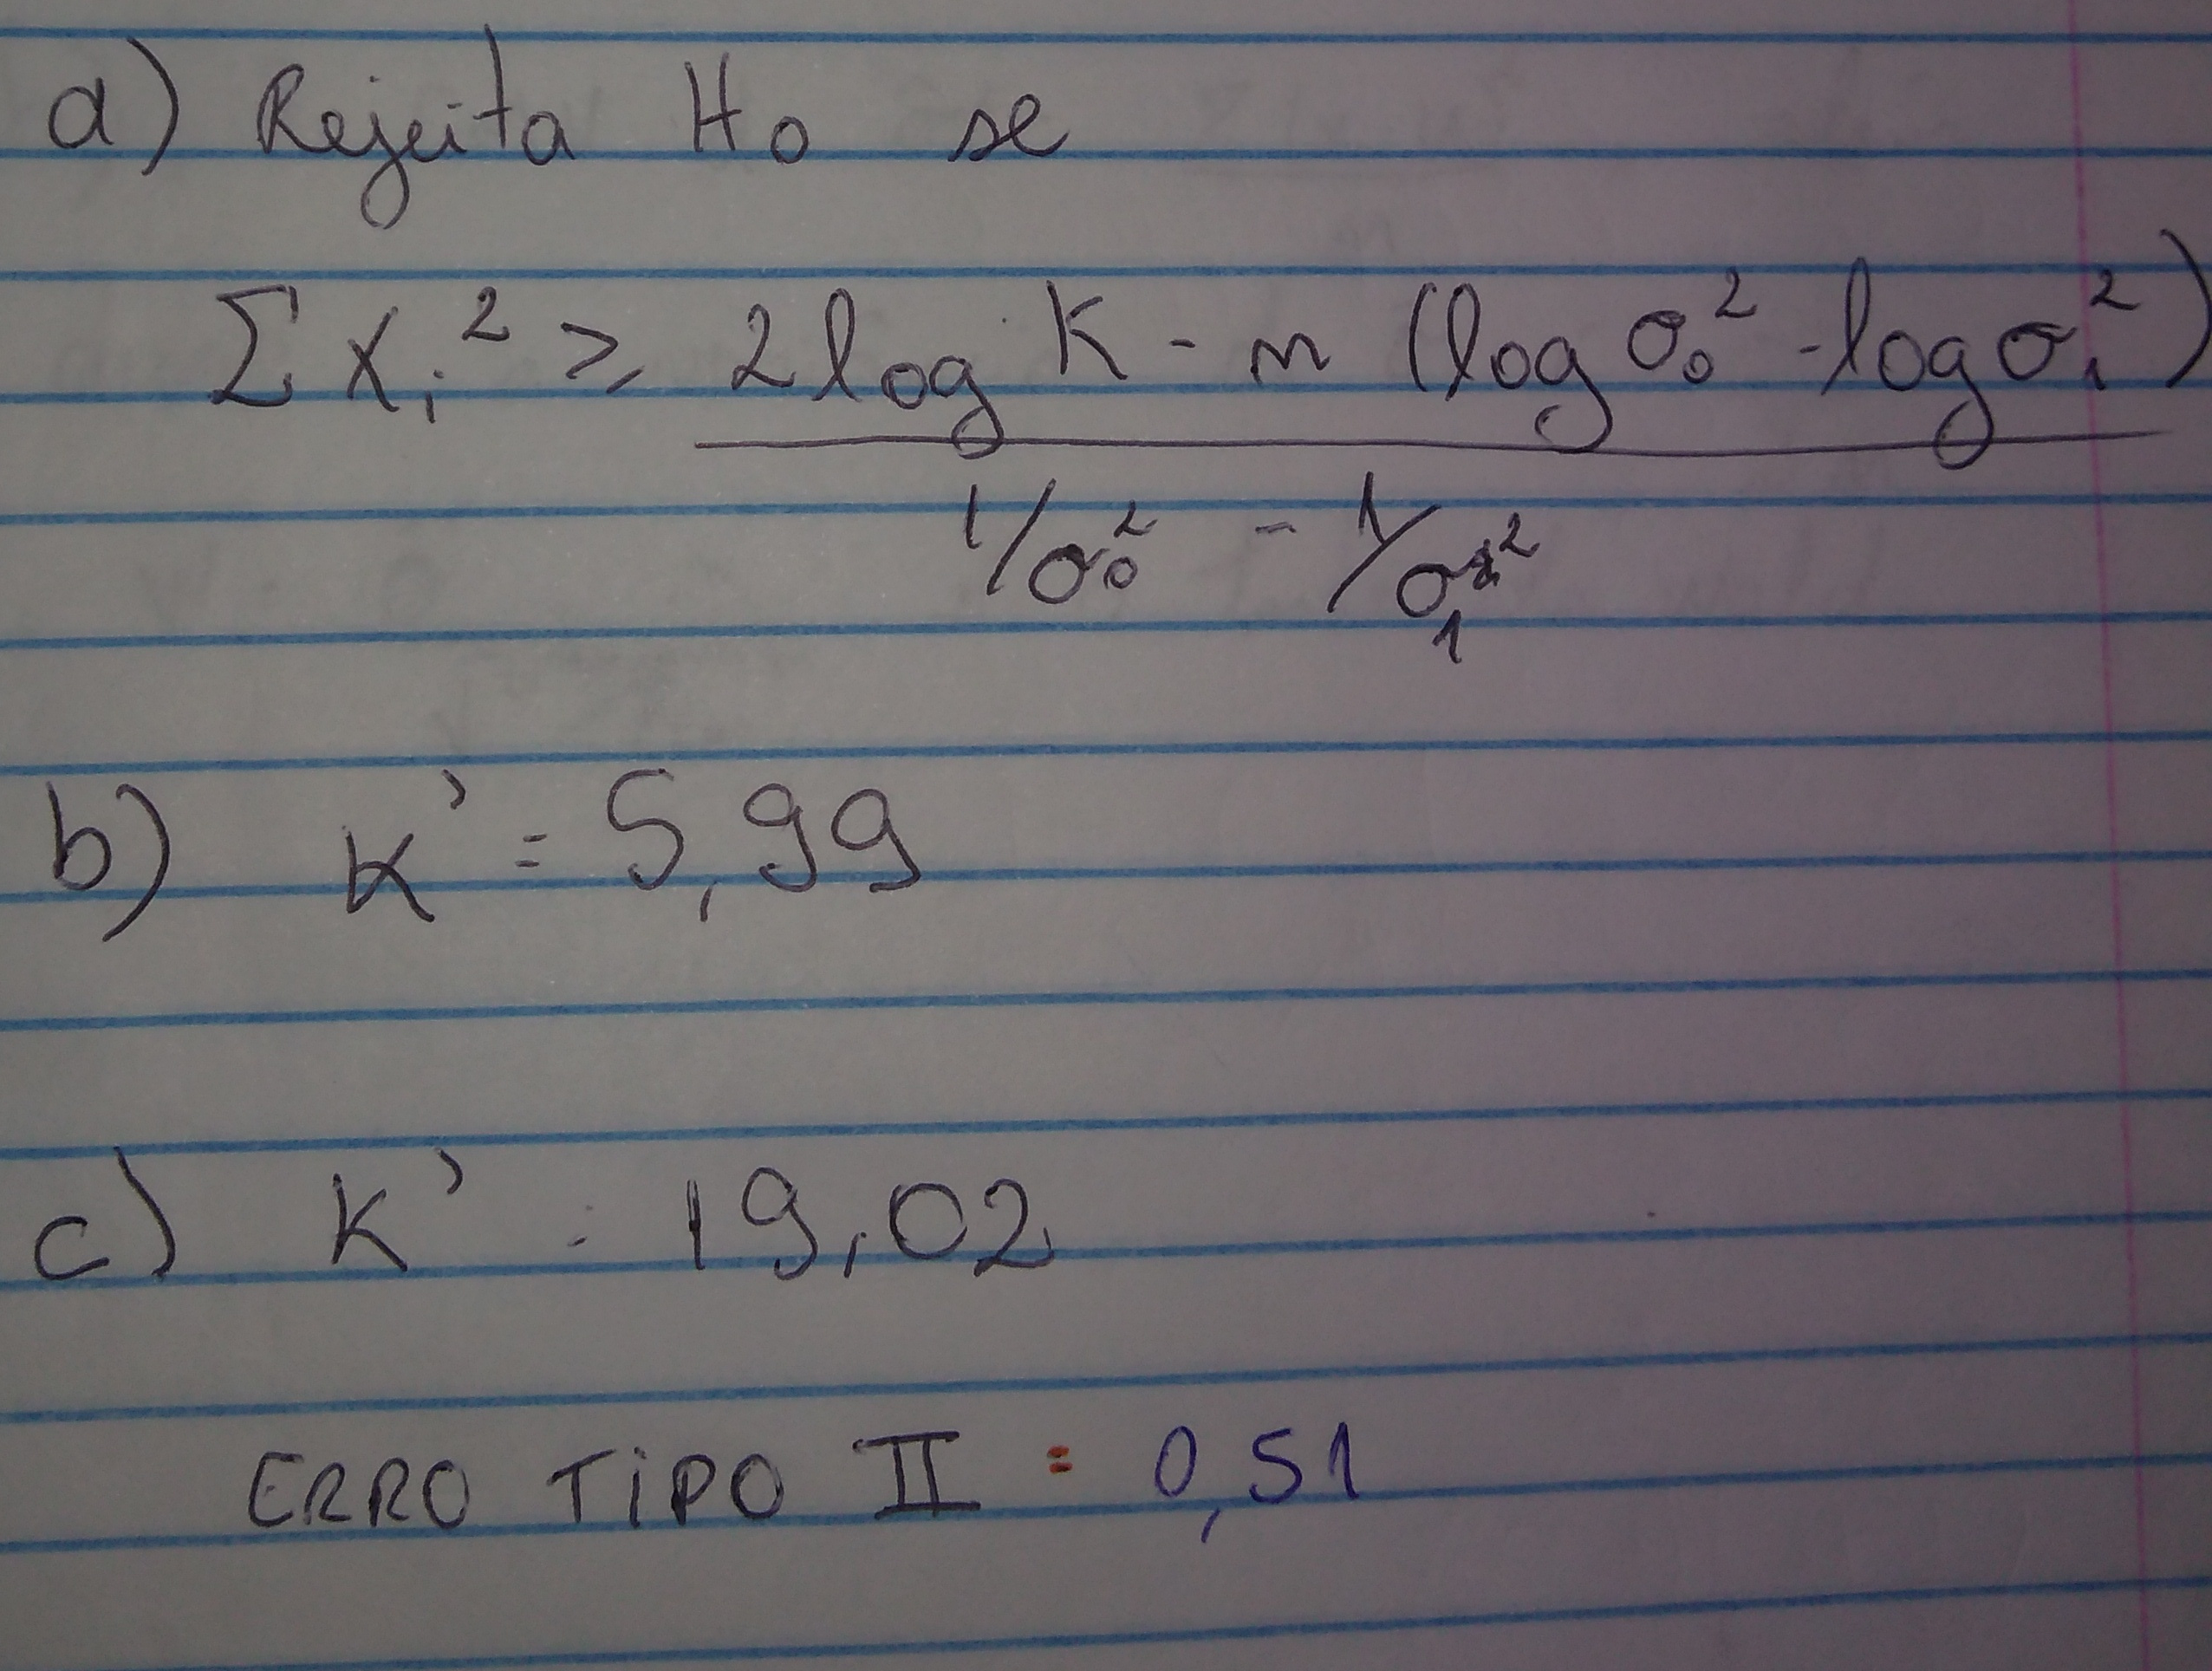 a) Rejeita H0 se
Σ Xi² ≥ 2 log K - n (log σ0² - log σ1²)
1/σ0² - 1/σ1²
b) K' = 5,99
c) K' = 19,02
ERRO TIPO II = 0,51